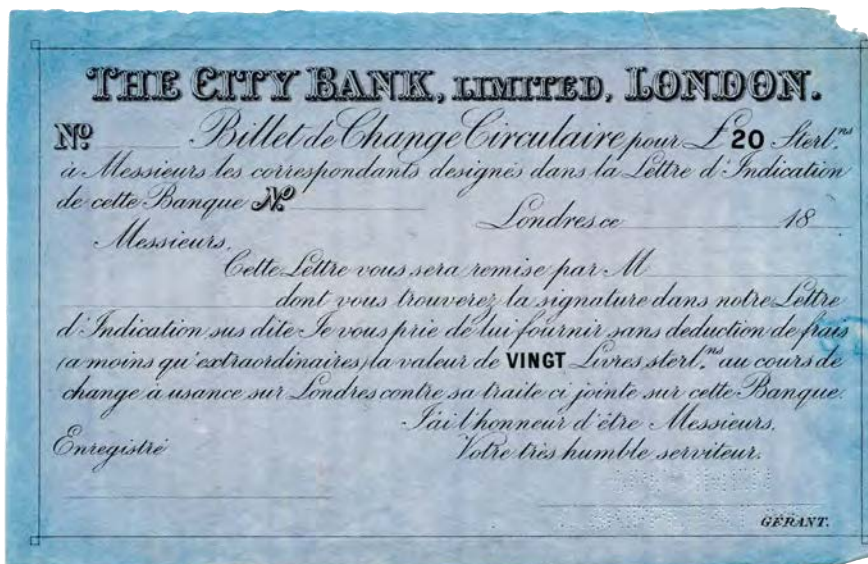 THE CITY BANK, LIMITED, LONDON.
No Billet de Change Circulaire pour £20 Sterl.ns
à Messieurs les correspondants designés dans la Lettre d'Indication
de cette Banque No
Londres ce 18
Messieurs,
Cette Lettre vous sera remise par M
dont vous trouverez la signature dans notre Lettre
d'Indication sus dite Je vous prie de lui fournir sans deduction de frais
(a moins qu'extraordinaires) la valeur de VINGT Livres sterl.ns au cours de
change à usance sur Londres contre sa traite ci jointe sur cette Banque.
J'ai l'honneur d'être Messieurs,
Enregistré Votre très humble serviteur.
GÉRANT.